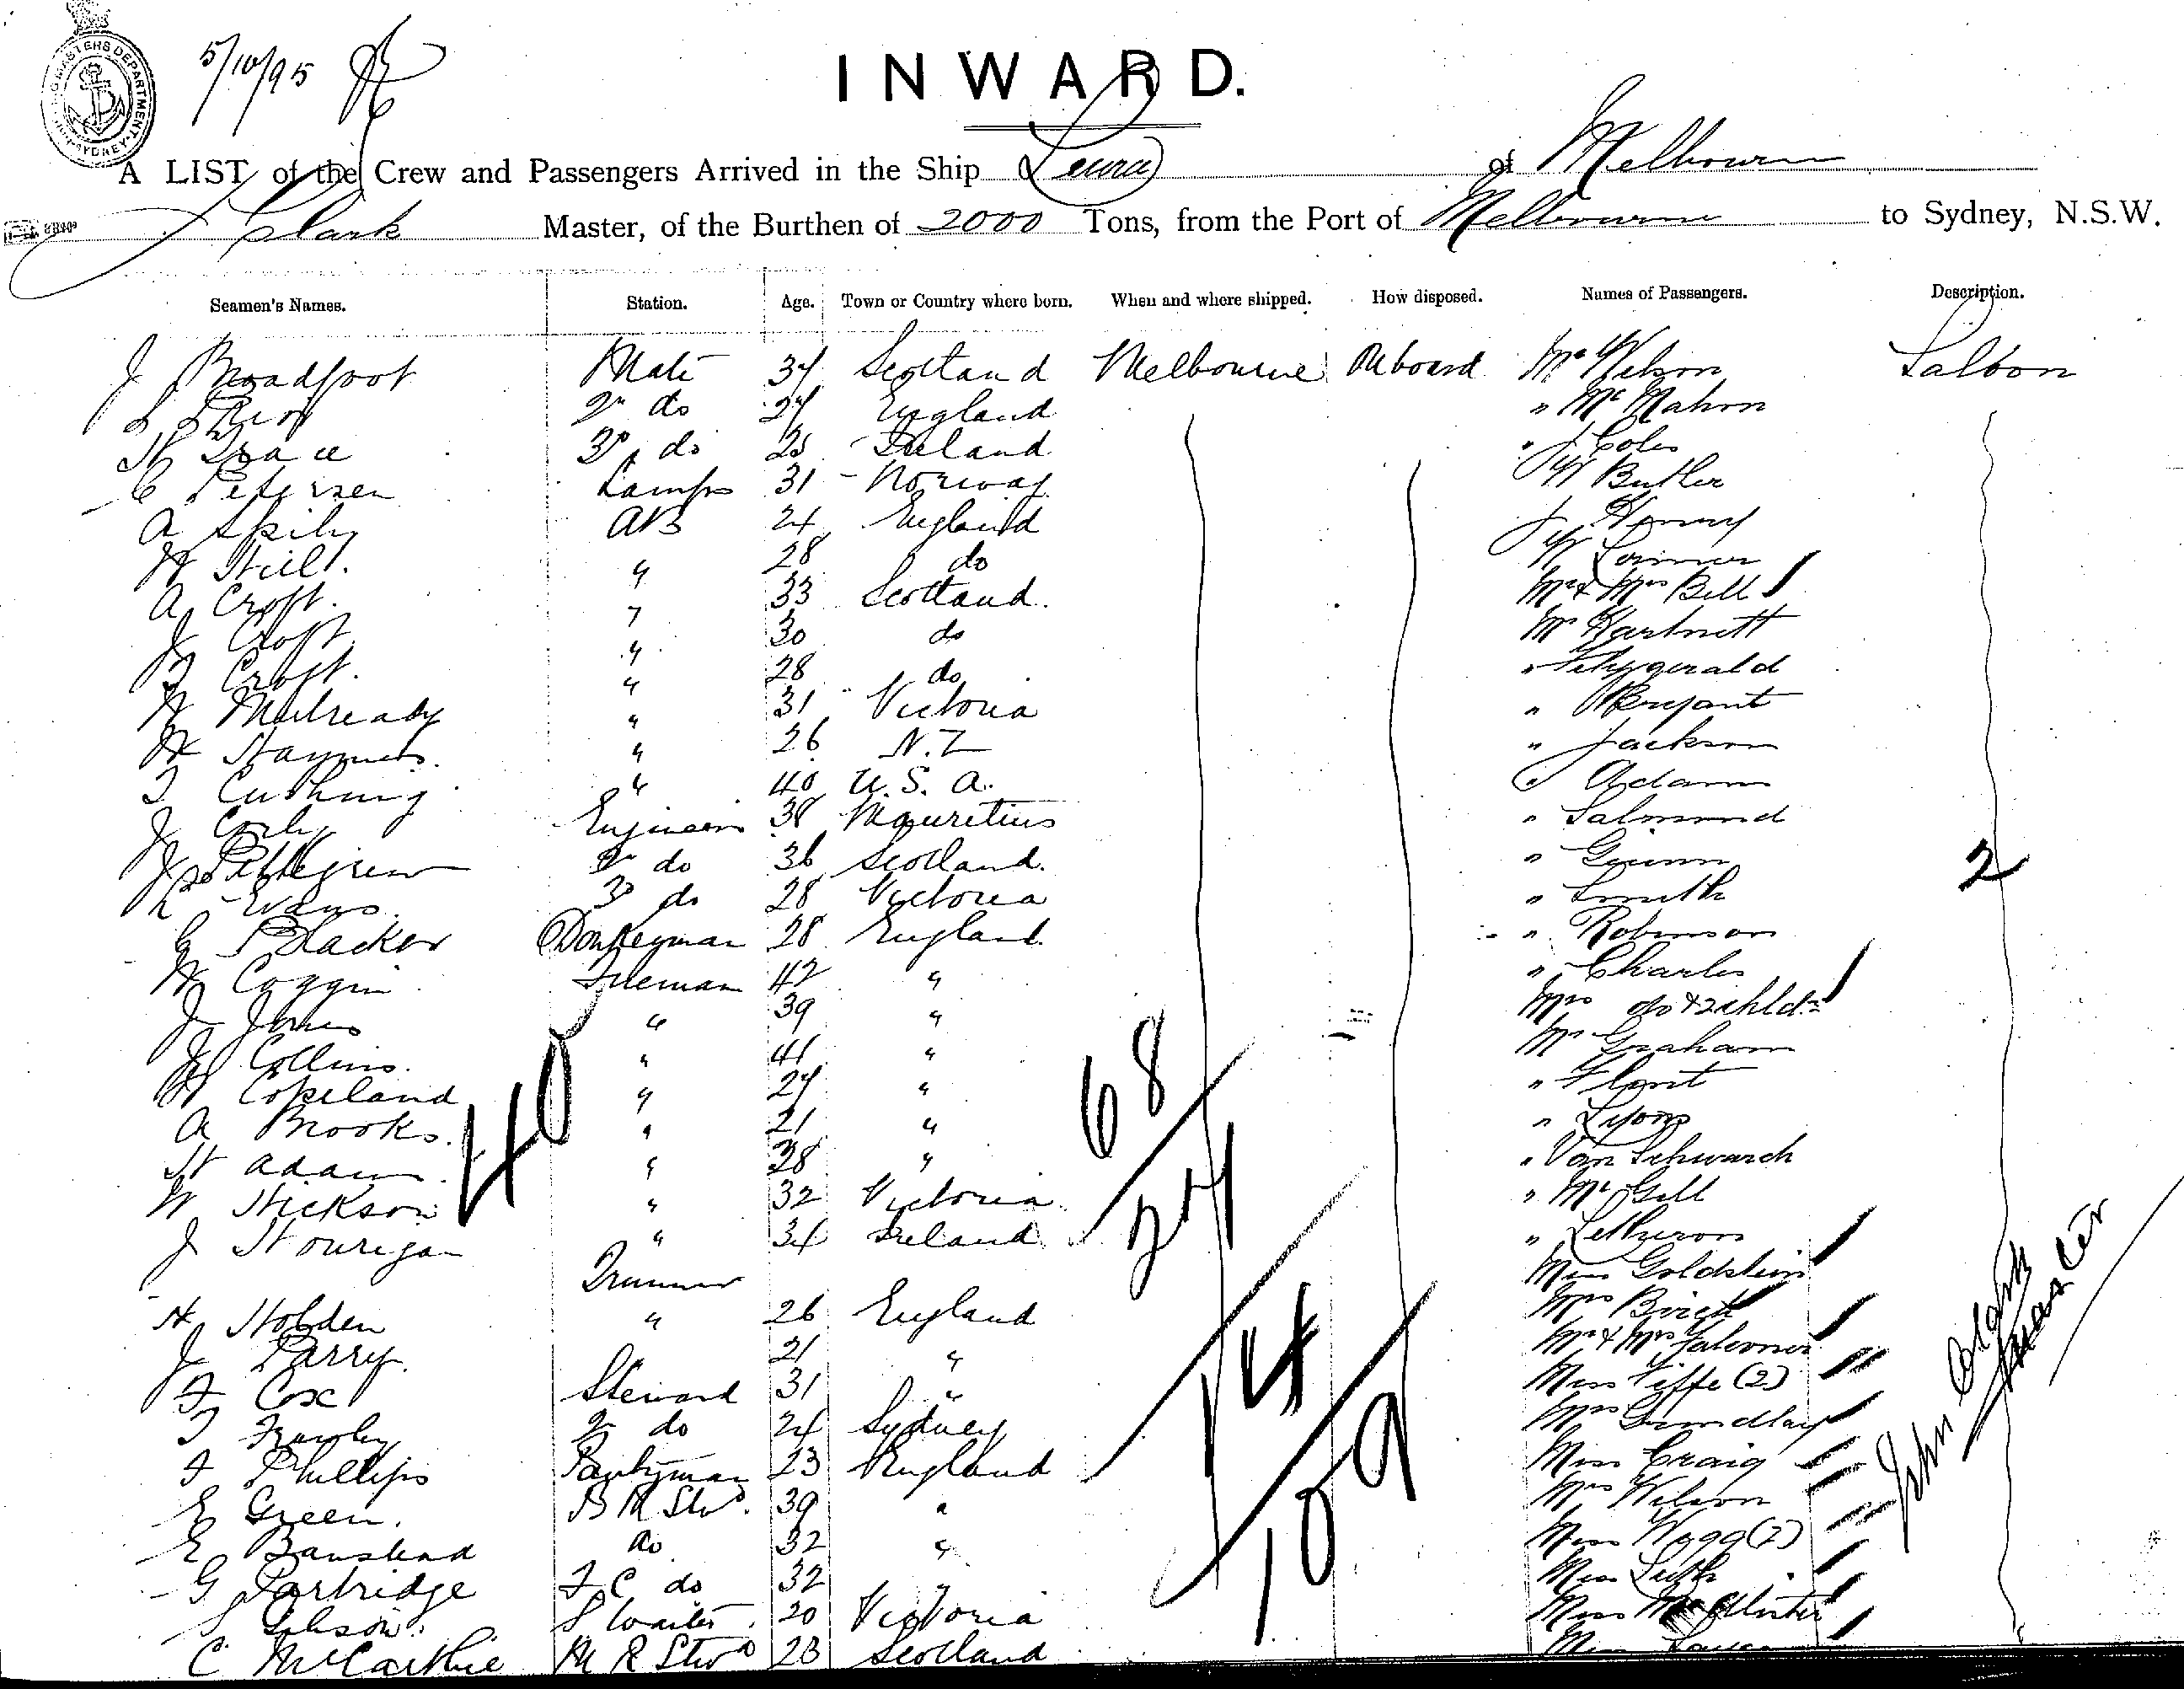 5/10/95
INWARD.
A LIST of the Crew and Passengers Arrived in the Ship Leura of Melbourne
J Clark Master, of the Burthen of 2000 Tons, from the Port of Melbourne to Sydney, N.S.W.
Seamen's Names. Station. Age. Town or Country where born. When and where shipped. How disposed. Names of Passengers. Description.
J Broadfoot Mate 34 Scotland Melbourne On board Mr Nelson Saloon
2nd do 27 England " Mc Mahon
H Grace 3rd do 25 Ireland " J Coles
C Petersen Lamps 31 Norway W Butler
A AB 24 England J
H 28 do W Lorimer
A Croft. " 33 Scotland. Mr & Mrs Bell
J Croft. " 30 do Mr Hartnett
Croft. " 28 do " Fitzgerald
Mulready " 31 Victoria " Bryant
H " 26 N.Z " Jackson
T Cushing " 40 U.S.A. Adam
J Engineer 38 Mauritius " Salmond
J Pettegrew 2nd do 36 Scotland. " Gunn
L Evans. 3rd do 28 Victoria " Smith
G Blacker Donkeyman 28 England. " Robinson
W Coggin Fireman 42 " " Charles
J Jones " 39 " Mrs do & 2 chldn
J Collins. " 41 " Mr Graham
H Copeland " 27 "
A Brooks. " 21 " " Lyons
H Adam " 28 " " Von Schwarch
W Hickson " 32 Victoria. " McGill
J Hourigan " 34 Ireland
Trimmer Miss Goldstein
H Holden " 26 England Mrs
J Parry. 21 " Mr & Mrs Falconer
F Cox Steward 31 " Miss (2)
T 2nd do 24 Sydney Mrs
F Phillips Pantryman 23 England Miss Craig
E Green. B R Stwd. 39 " Mrs Wilson
E Banstead do 32 " Miss Wagg (2)
G Partridge F C do 32 " Miss
S Gibson. S Waiter. 20 Victoria Miss
C McCarthie M R Stwd 23 Scotland Miss
40
68
27
14
109
2
John Clark
Master